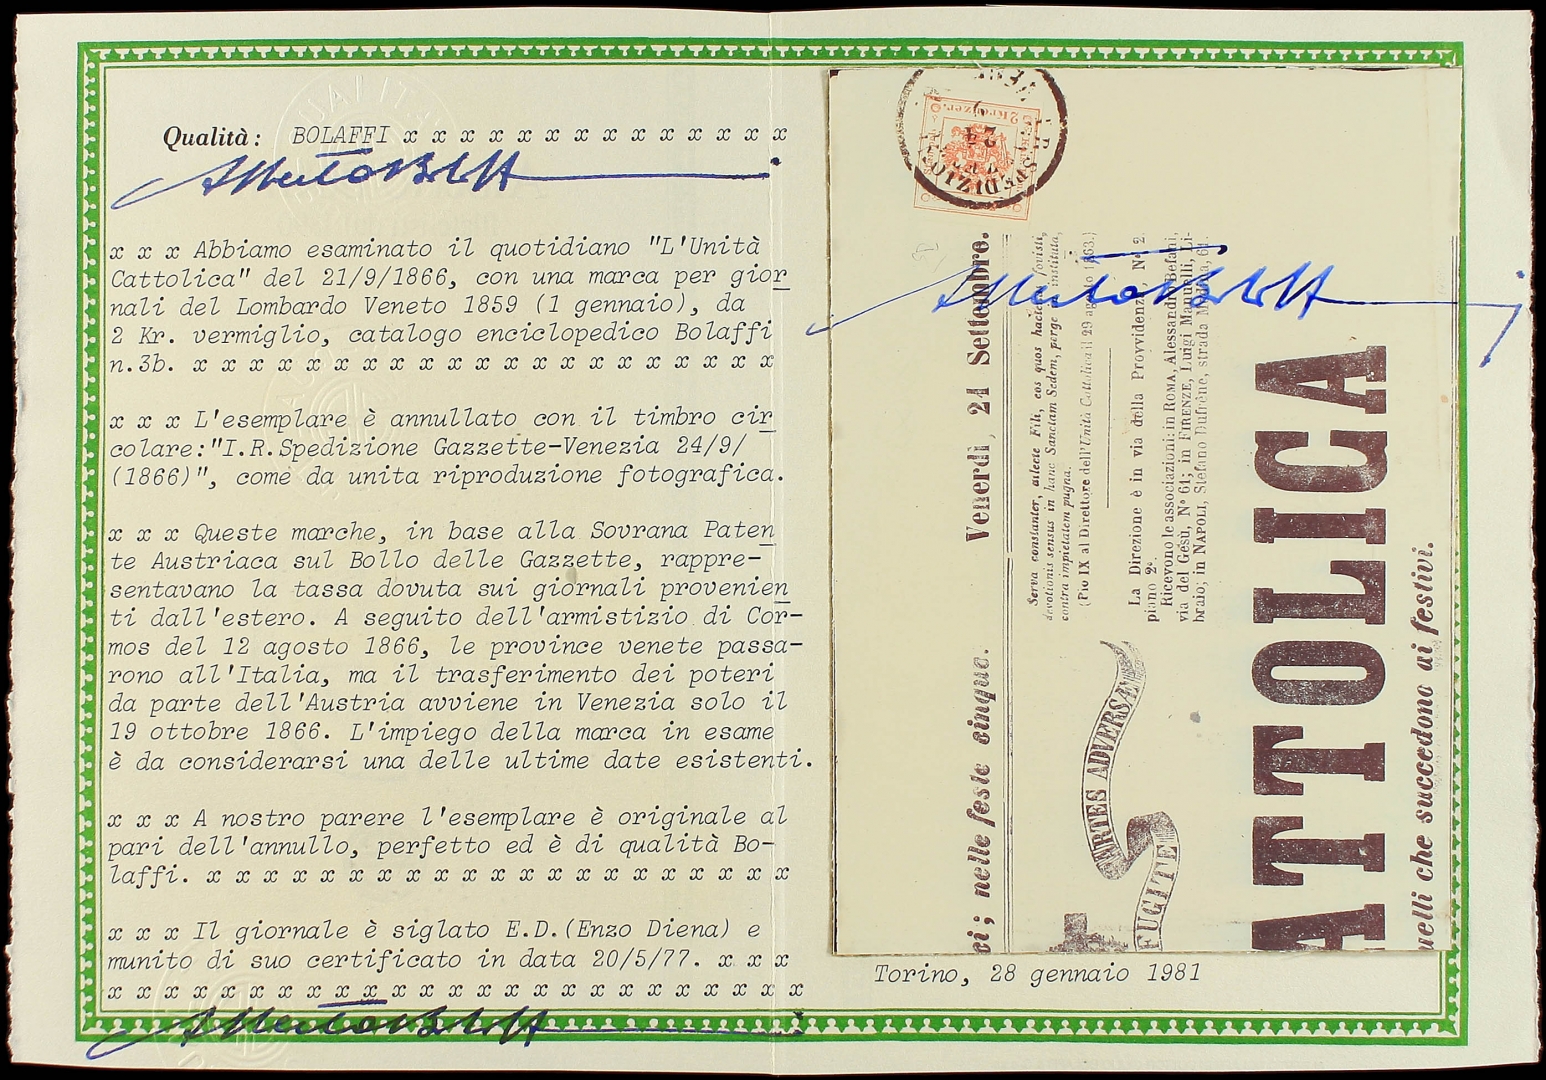 Qualità: BOLAFFI x x x x x x x x x x x x x x
x x x Abbiamo esaminato il quotidiano "L'Unità
Cattolica" del 21/9/1866, con una marca per gior
nali del Lombardo Veneto 1859 (1 gennaio), da
2 Kr. vermiglio, catalogo enciclopedico Bolaffi
n.3b. x x x x x x x x x x x x x x x x x x x x x
x x x L'esemplare è annullato con il timbro cir
colare:"I.R.Spedizione Gazzette-Venezia 24/9/
(1866)", come da unita riproduzione fotografica.
x x x Queste marche, in base alla Sovrana Paten
te Austriaca sul Bollo delle Gazzette, rappre-
sentavano la tassa dovuta sui giornali provenien
ti dall'estero. A seguito dell'armistizio di Cor-
mos del 12 agosto 1866, le province venete passa-
rono all'Italia, ma il trasferimento dei poteri
da parte dell'Austria avviene in Venezia solo il
19 ottobre 1866. L'impiego della marca in esame
è da considerarsi una delle ultime date esistenti.
x x x A nostro parere l'esemplare è originale al
pari dell'annullo, perfetto ed è di qualità Bo-
laffi. x x x x x x x x x x x x x x x x x x x x x
x x x Il giornale è siglato E.D.(Enzo Diena) e
munito di suo certificato in data 20/5/77. x x x
x x x x x x x x x x x x x x x x x x x x x x x x x
2 Kreuzer
SPEDIZIO
Venerdì, 21 Settembre.
ni; nelle feste cinque.
Serva constanter, dilecte Fili, eos quos hactenus fovisti,
devotionis sensus in hanc Sanctam Sedem, perge institute,
contra impietatem pugna.
(Pio IX al Direttore dell'Unità Cattolica il 29 agosto 1863.)
La Direzione è in via della Provvidenza, N° 2
piano 2°
Ricevono le associazioni: in ROMA, Alessandro Befani,
via del Gesù, N° 61; in FIRENZE, Luigi Manuelli, Li-
braio; in NAPOLI, Stefano Dufrène, strada Medina, 61.
PARTES ADVERSÆ
FUGITE
ATTOLICA
quelli che succedono ai festivi.
Torino, 28 gennaio 1981